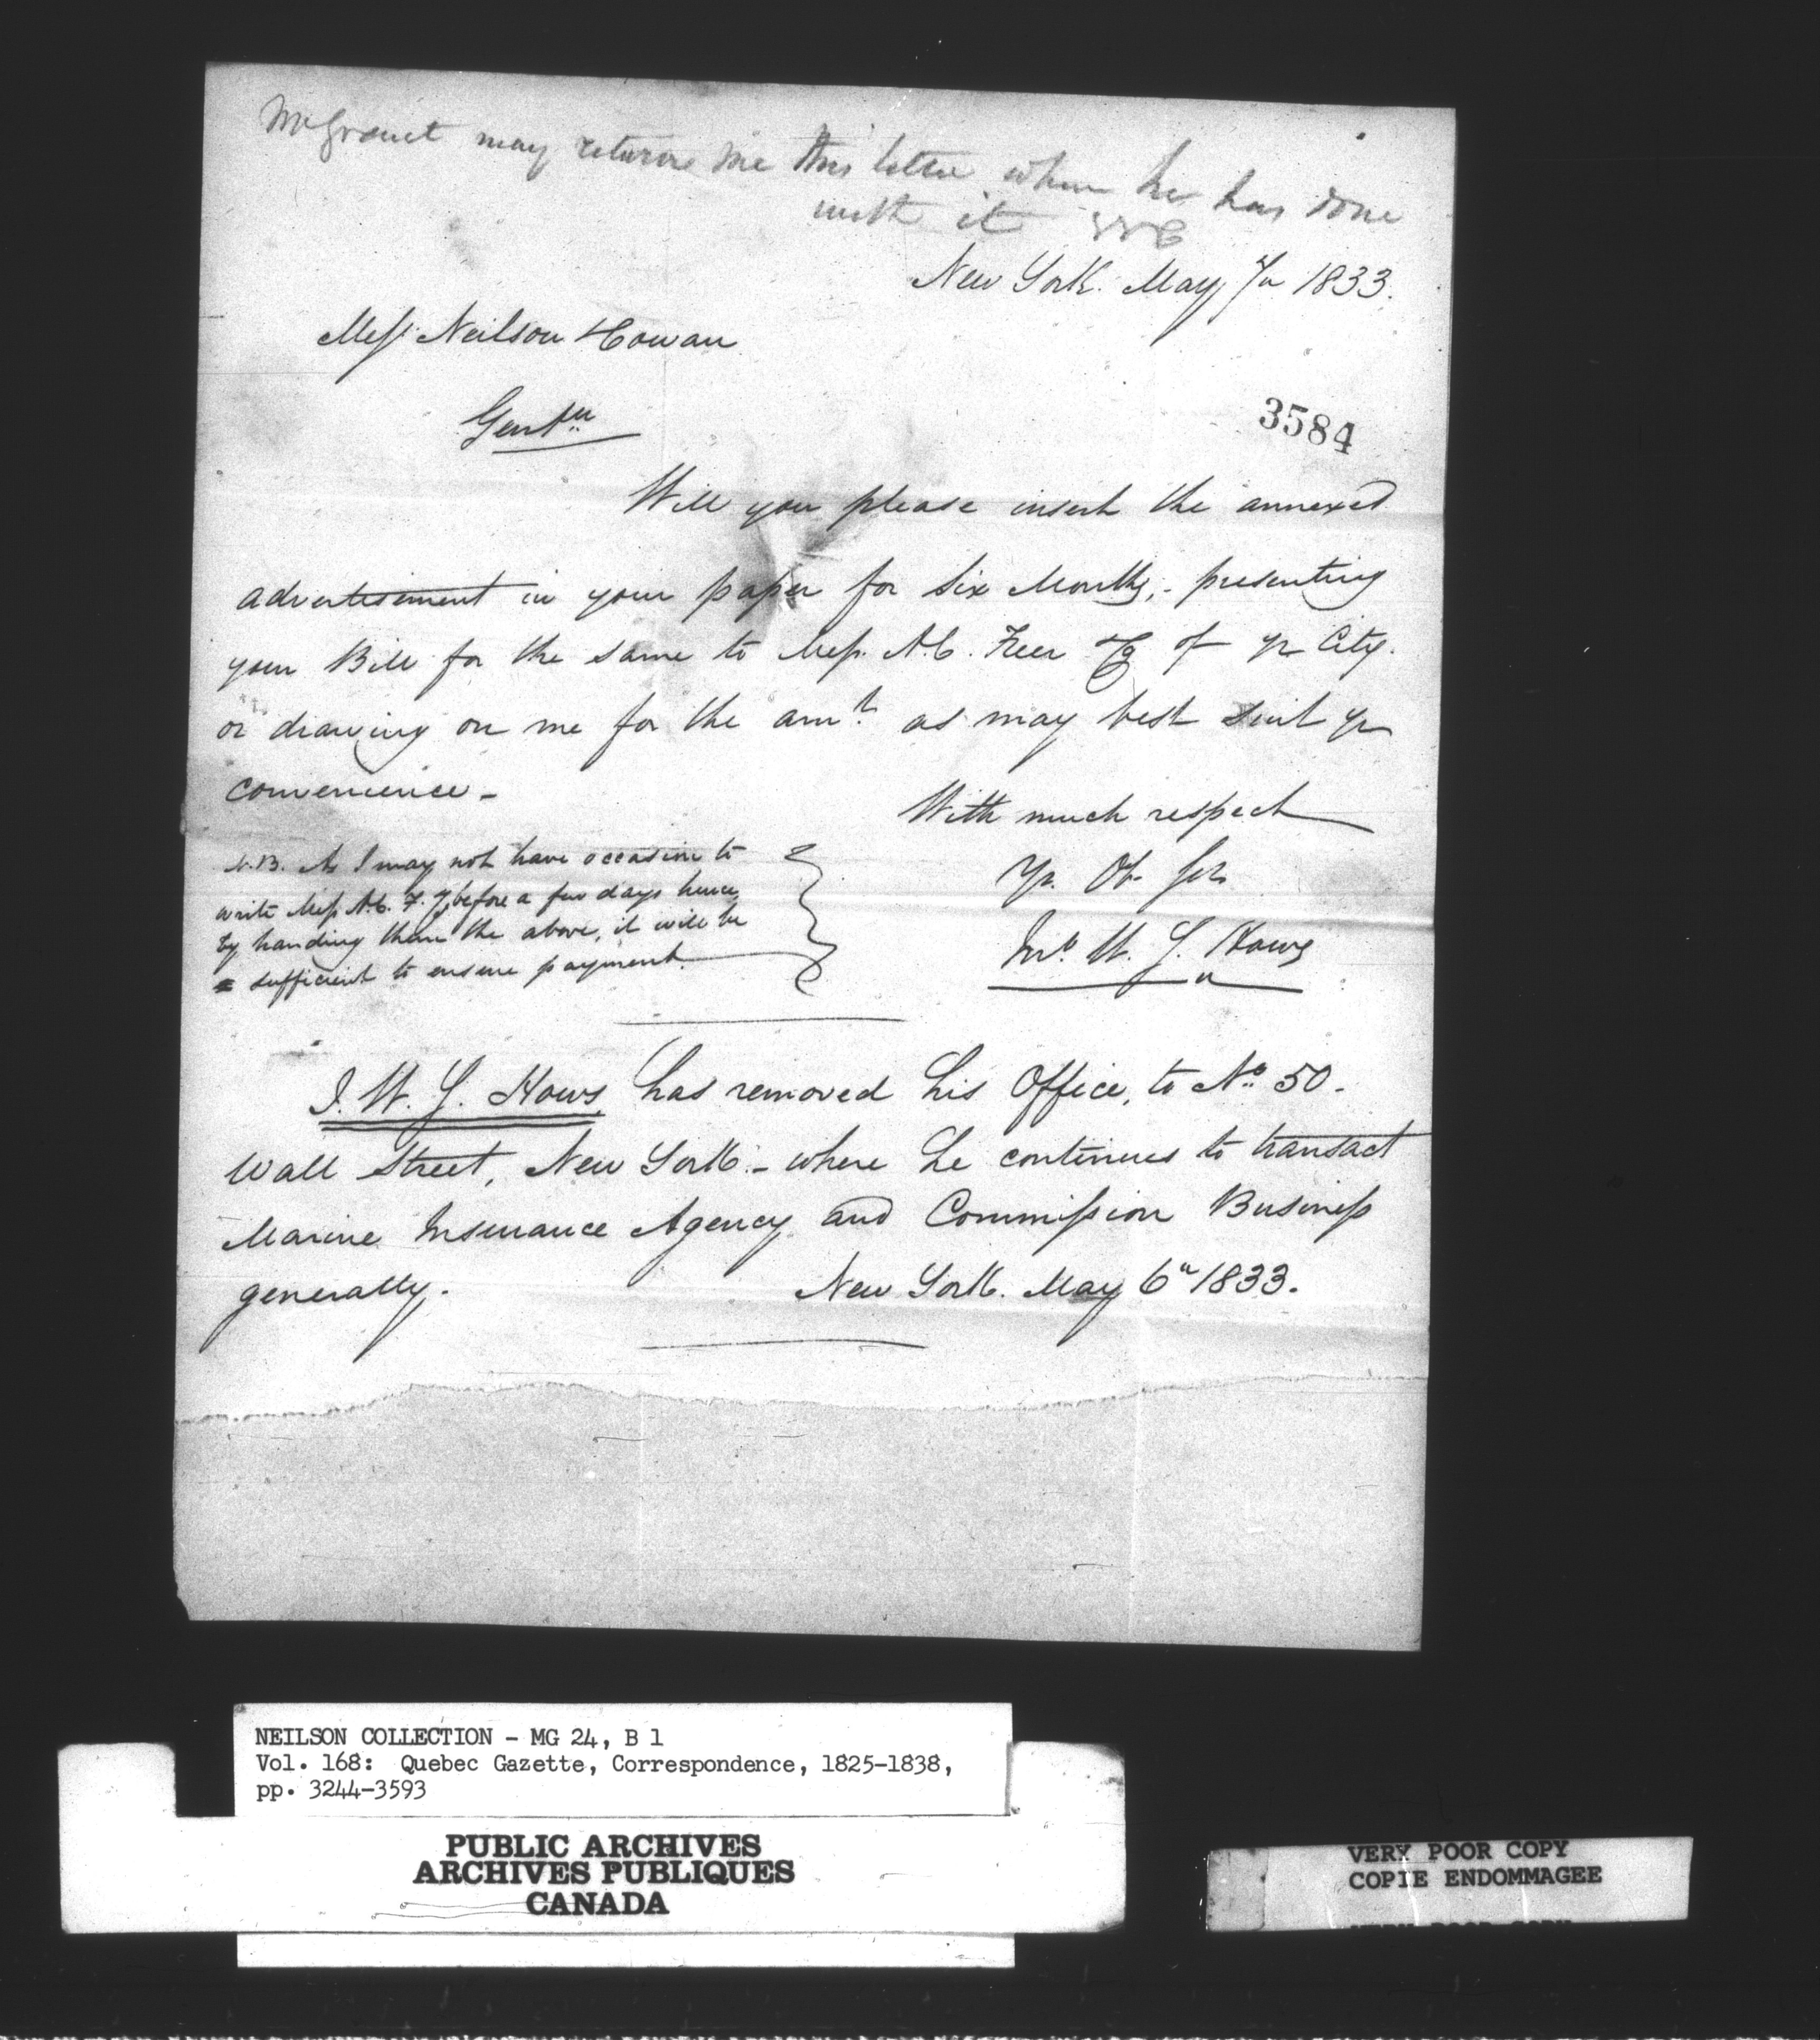 Mr Grant may return me this letter when he has done
with it
New York. May 1833.
Messrs Neilson & Cowan
Gentn
3584
Will you please insert the annexed
advertisement in your paper for Six Months, - presenting
your Bill for the same to Mess. N.C. Freer & Co of yr City.
or drawing on me for the amt. as may best suit yr
convenience -
With much respect
N.B. As I may not have occasion to
write Mess N.C. F. before a few days hence
by handing them the above, it will be
sufficient to ensure payment.
Yr. Ob. Sr.
Jno. W. S. Hows
J. W. S. Hows has removed his Office, to No. 50.
Wall Street, New York. - where he continues to transact
Marine Insurance Agency and Commission Business
generally.
New York. May 6th 1833.
NEILSON COLLECTION - MG 24, B 1
Vol. 168: Quebec Gazette, Correspondence, 1825-1838,
pp. 3244-3593
PUBLIC ARCHIVES
ARCHIVES PUBLIQUES
CANADA
VERY POOR COPY
COPIE ENDOMMAGEE